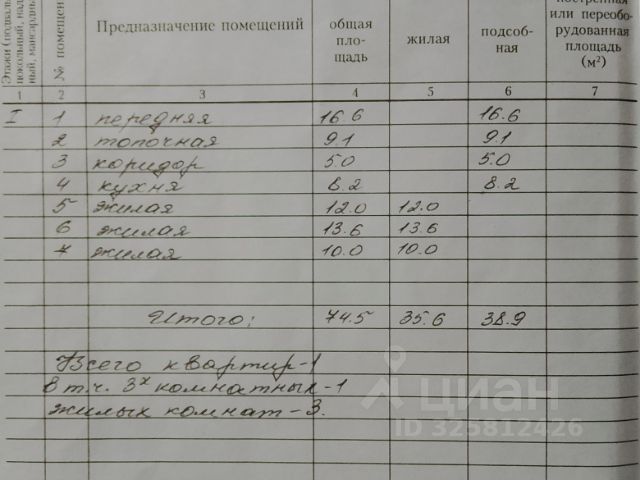 Этажи (подвальный, цокольный, надземный, мансардный)
№ помещения
Предназначение помещений
общая пло-щадь
жилая
подсоб-ная
или переобо-рудованная площадь (м²)
1 2 3 4 5 6 7
I 1 передняя 16.6 16.6
2 топочная 9.1 9.1
3 коридор 5.0 5.0
4 кухня 8.2 8.2
5 жилая 12.0 12.0
6 жилая 13.6 13.6
7 жилая 10.0 10.0
Итого: 74.5 35.6 38.9
Всего квартир-1
в т.ч. 3х комнатных-1
жилых комнат-3.
циан
ID 325812426